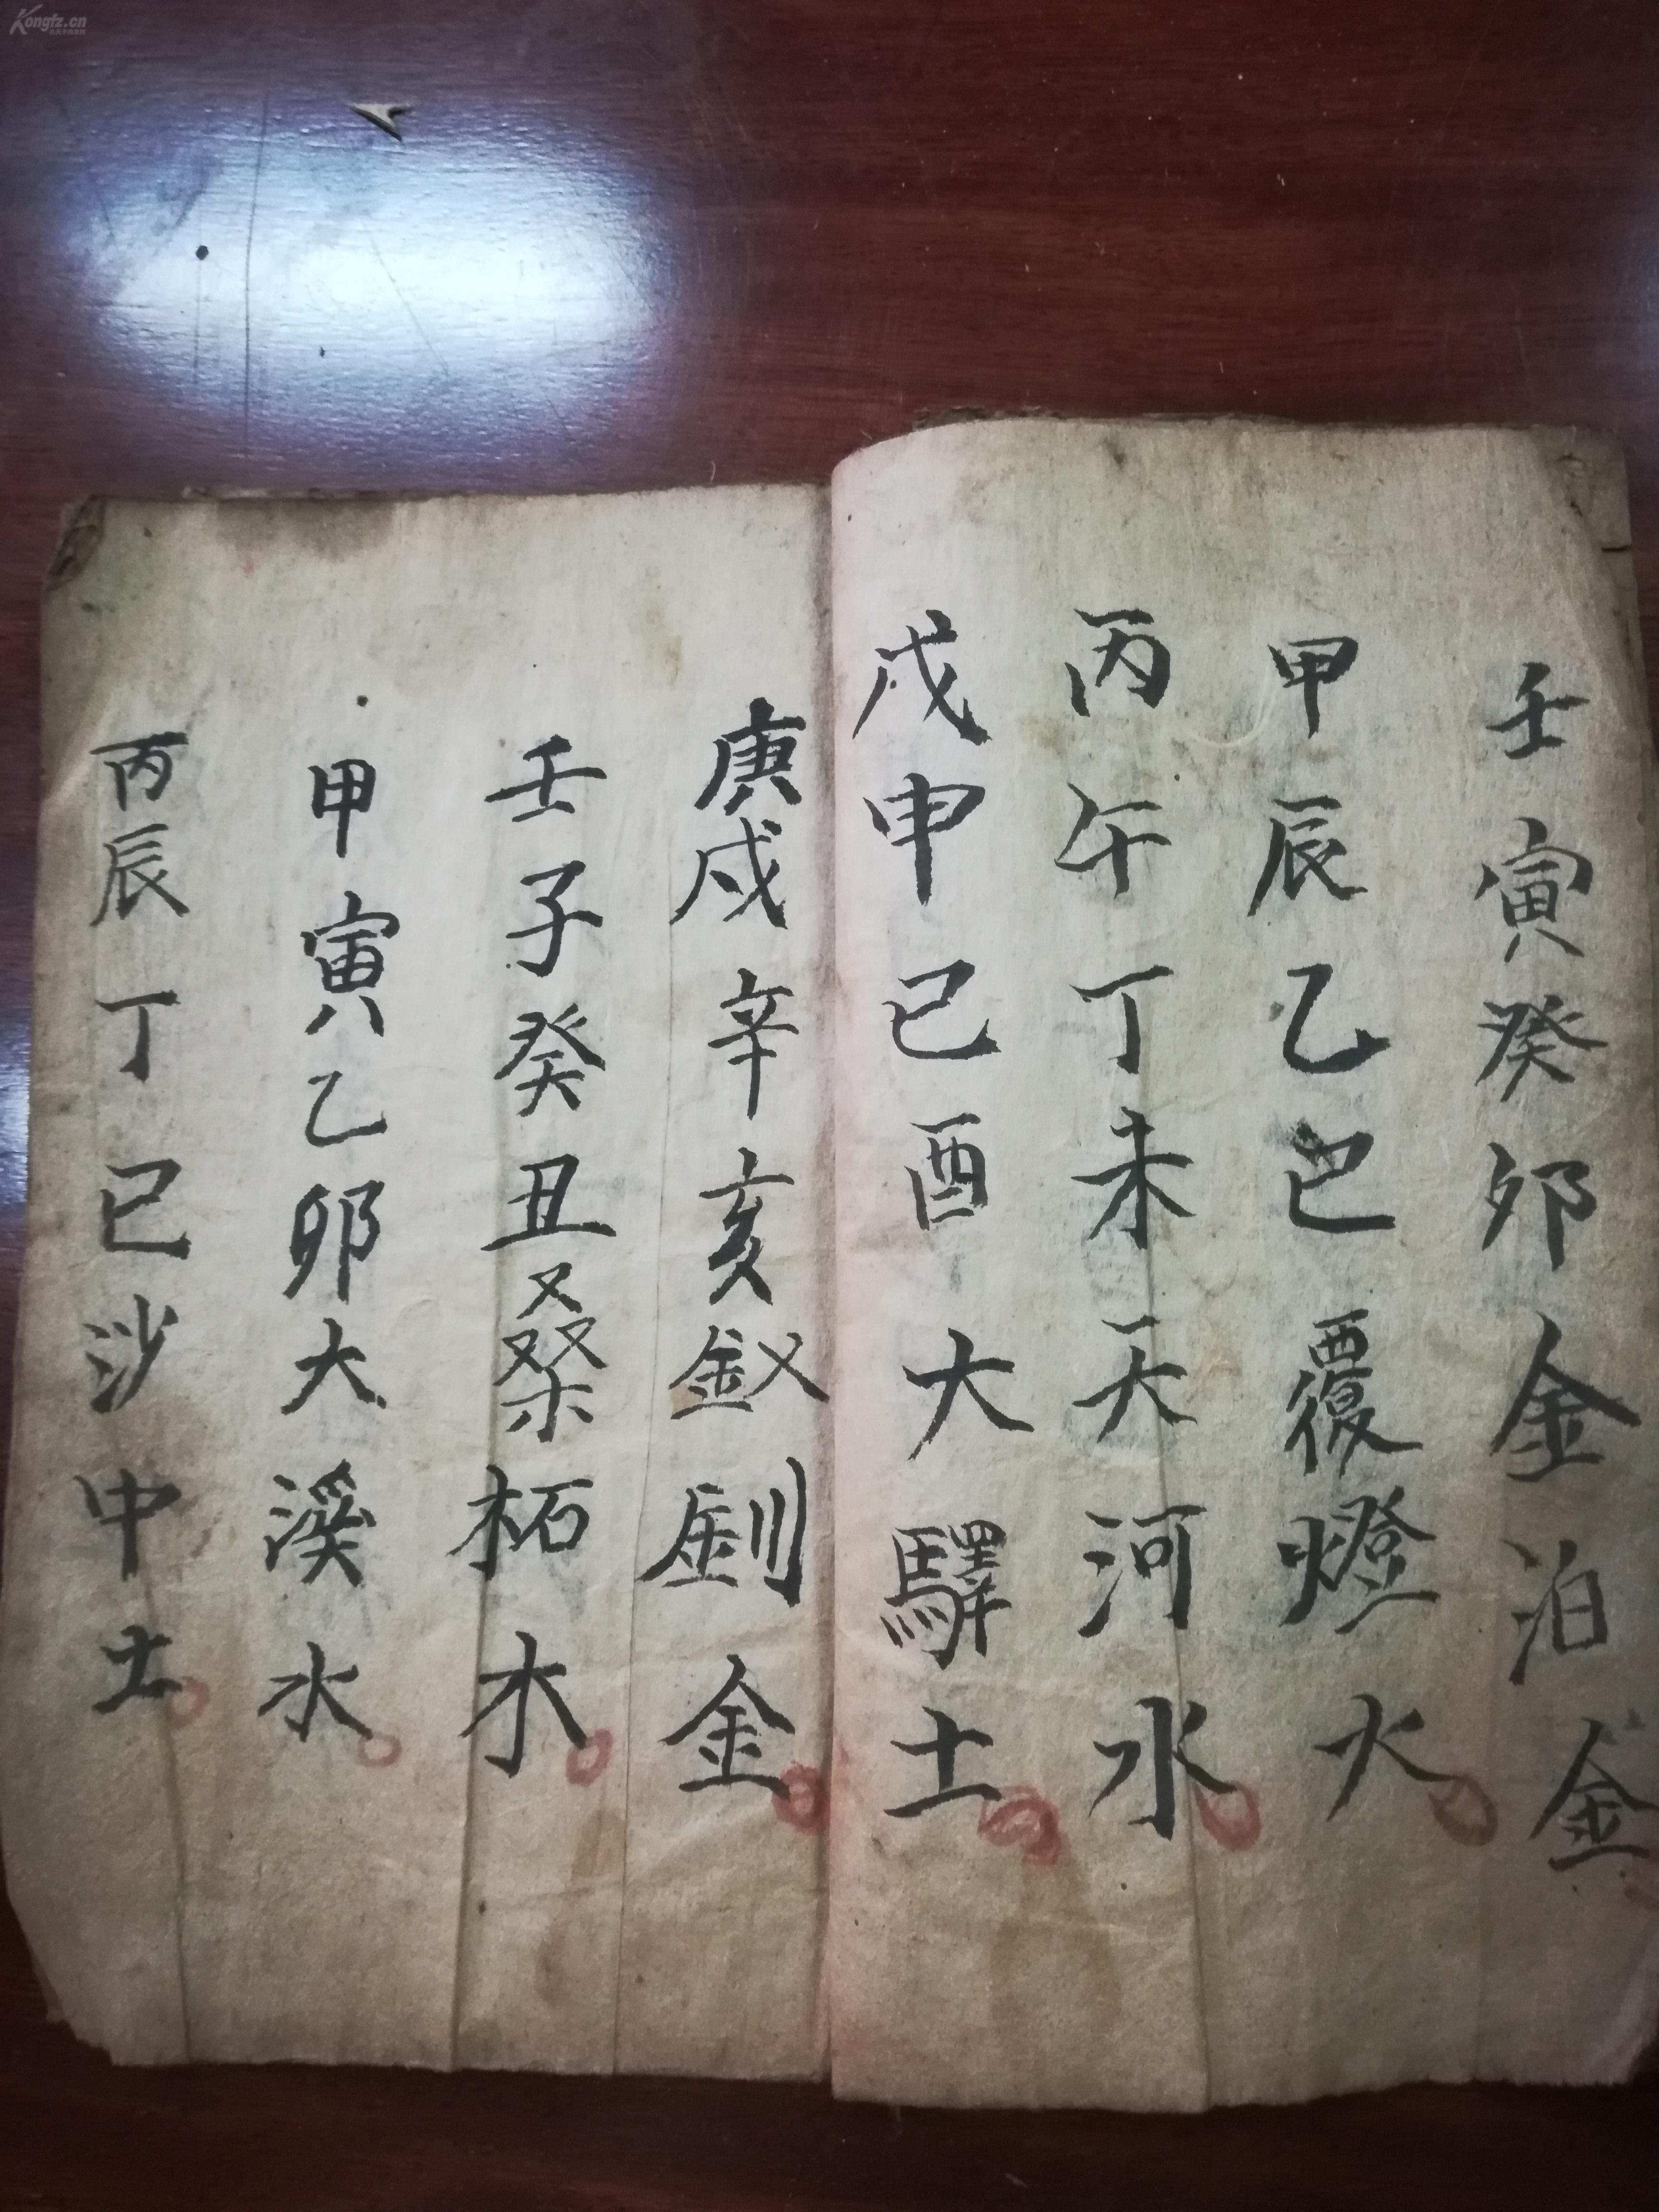 壬寅癸卯金泊金
甲辰乙巳覆燈火
丙午丁未天河水
戊申己酉大驛土
庚戌辛亥釵釧金
壬子癸丑桑柘木
甲寅乙卯大溪水
丙辰丁巳沙中土
Kongfz.cn